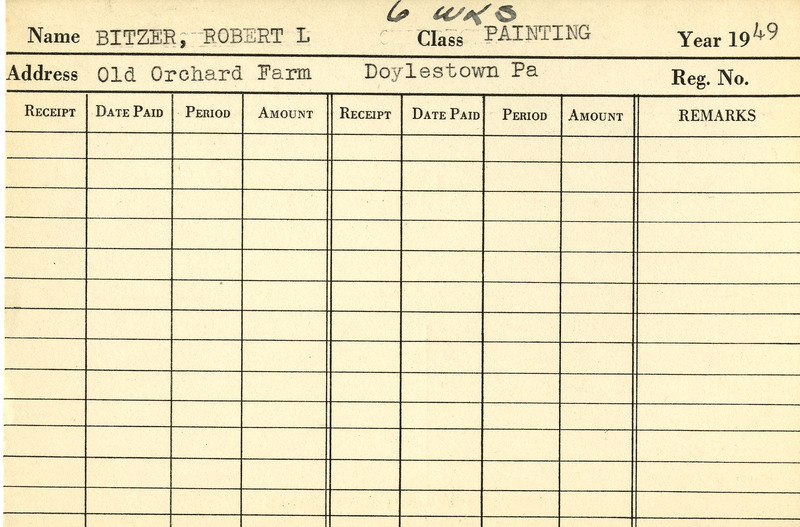 6 WKS
Name BITZER, ROBERT L Class PAINTING Year 1949
Address Old Orchard Farm Doylestown Pa Reg. No.
RECEIPT DATE PAID PERIOD AMOUNT RECEIPT DATE PAID PERIOD AMOUNT REMARKS